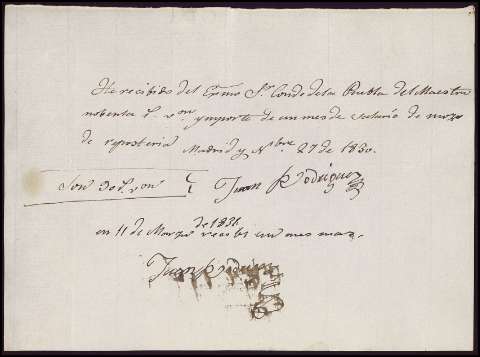 He recibido del Exmo Sr. Conde de la Puebla del Maestre
nobenta rs. von y importe de un mes de salario de mozo
de reposteria Madrid y Nbre 27 de 1830.
Son 90 rs. von
Juan Rodriguez
en 11 de Marzo de 1831. recibi un mes mas.
Juan Rodriguez